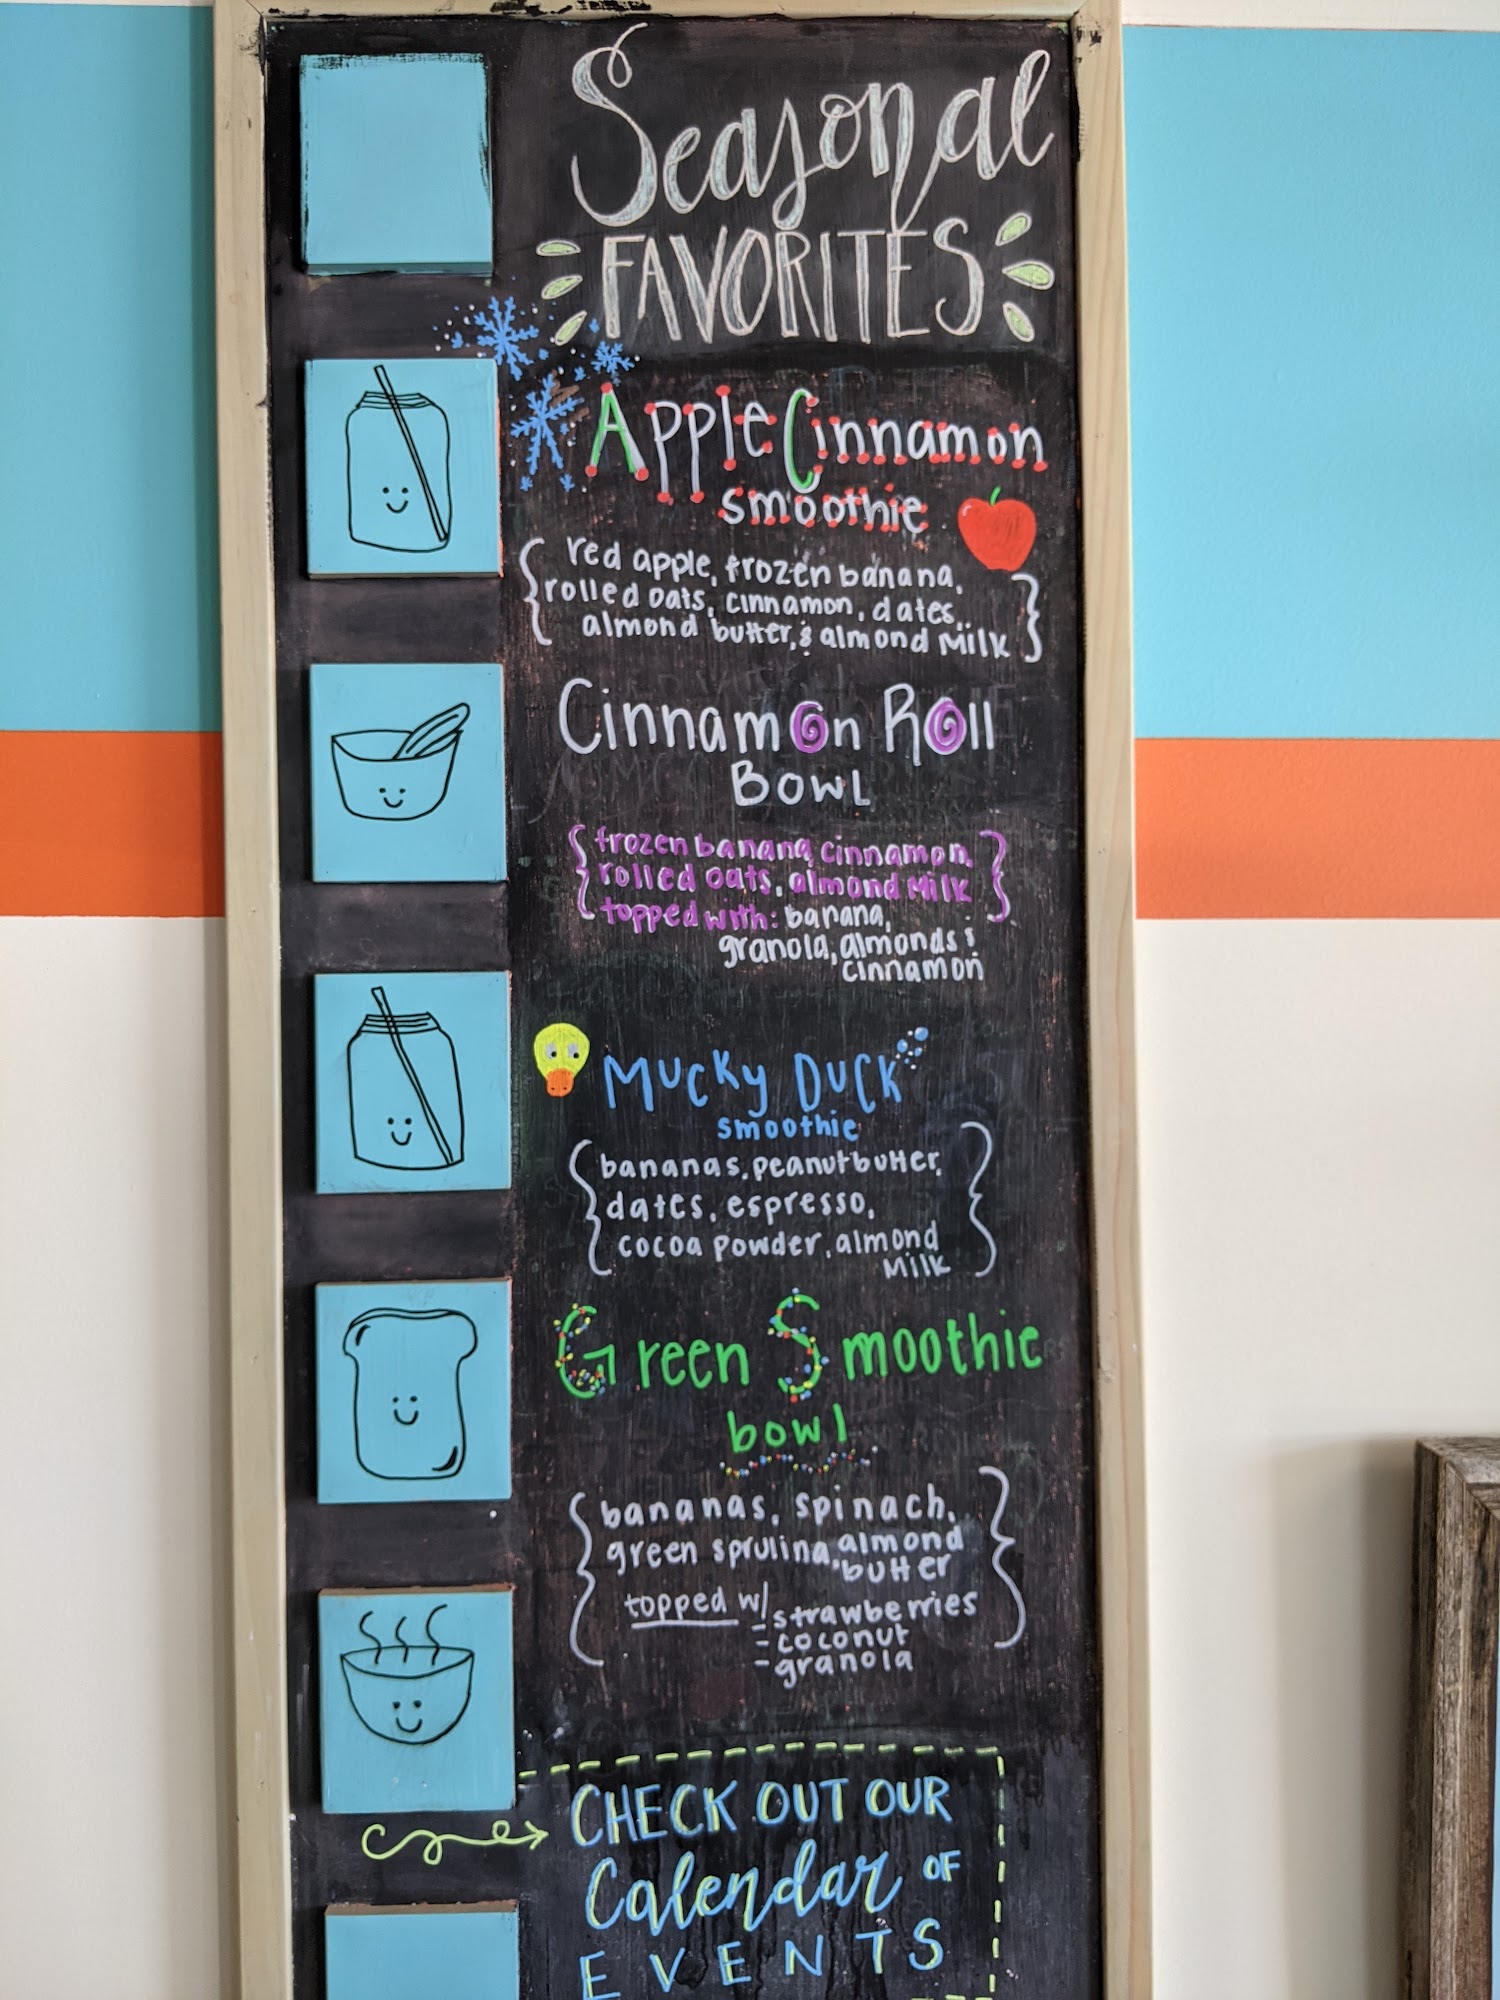 Seasonal
FAVORITES
Apple Cinnamon
smoothie
{red apple, frozen banana,
rolled oats, cinnamon, dates,
almond butter, & almond milk}
Cinnamon Roll
BOWL
{frozen banana, cinnamon,
rolled oats, almond milk
topped with: banana,
granola, almonds &
cinnamon}
MUCKY DUCK
smoothie
{bananas, peanut butter,
dates, espresso,
cocoa powder, almond
milk}
Green Smoothie
bowl
{bananas, spinach,
green sprulina, almond
butter
topped w/ - strawberries
- coconut
- granola}
CHECK OUT OUR
Calendar OF
EVENTS